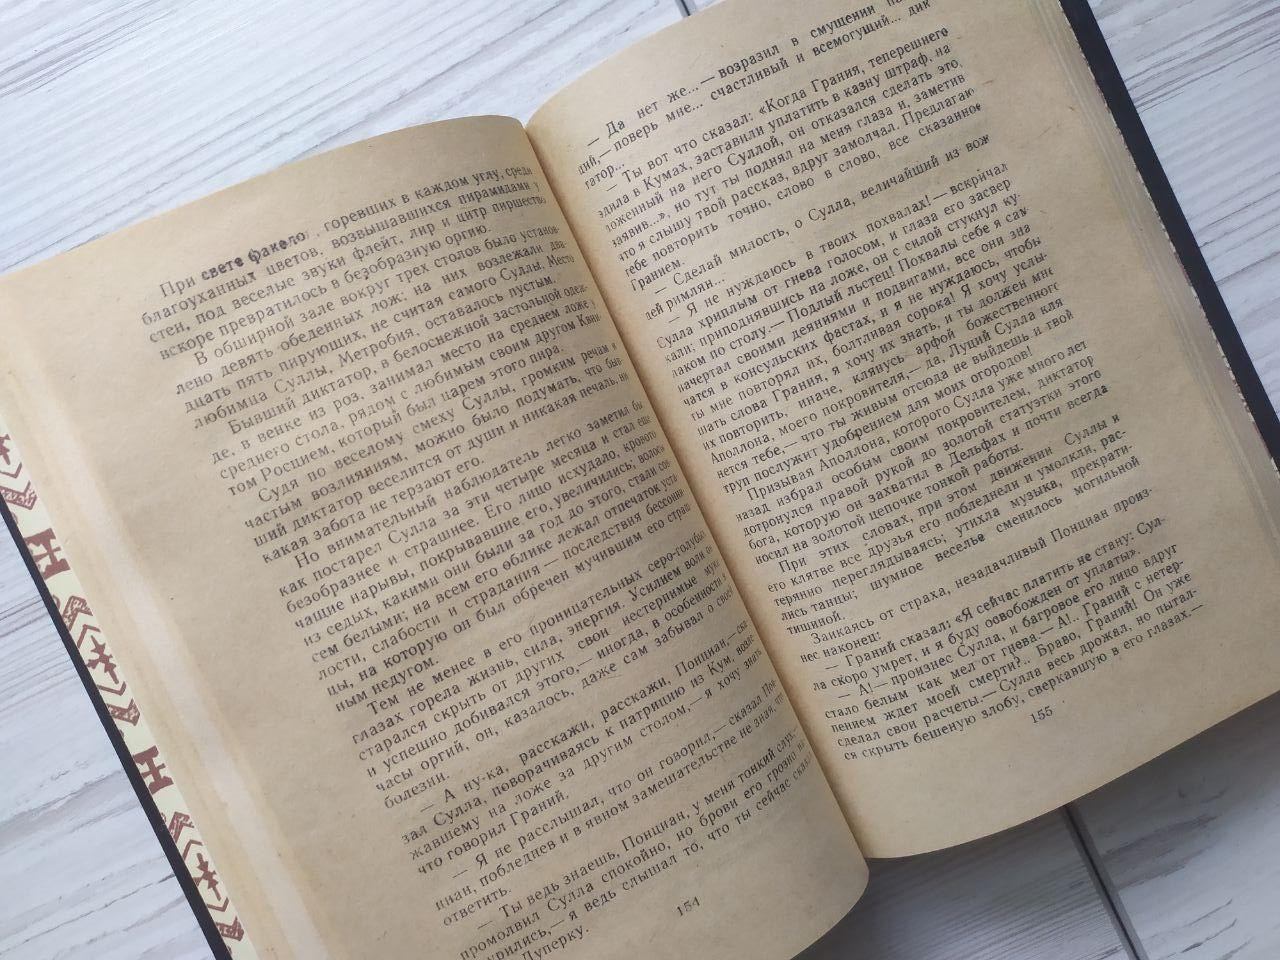 При свете факело горевших в каждом углу, среди
благоуханных цветов, возвышавшихся пирамидами у
стен, под веселые звуки флейт, лир и цитр пиршество
вскоре превратилось в безобразную оргию.
В обширной зале вокруг трех столов было установ-
лено девять обеденных лож: на них возлежали два-
дцать пять пирующих, не считая самого Суллы. Место
любимца Суллы, Метробия, оставалось пустым.
Бывший диктатор, в белоснежной застольной одеж-
де, в венке из роз, занимал место на среднем ложе у
среднего стола, рядом с любимым своим другом Квин-
том Росцием, который был царем этого пира.
Судя по веселому смеху Суллы, громким речам и
частым возлияниям, можно было подумать, что быв-
ший диктатор веселится от души и никакая печаль, ни-
какая забота не терзают его.
Но внимательный наблюдатель легко заметил бы
как постарел Сулла за эти четыре месяца и стал еще
безобразнее и страшнее. Его лицо исхудало, кровото-
чащие нарывы, покрывавшие его, увеличились, волосы
из седых, какими они были за год до этого, стали сов-
сем белыми; на всем его облике лежал отпечаток уста-
лости, слабости и страдания — последствия бессонни-
цы, на которую он был обречен мучившим его страш-
ным недугом.
Тем не менее в его проницательных серо-голубых
глазах горела жизнь, сила, энергия. Усилием воли он
старался скрыть от других свои нестерпимые муки
и успешно добивался этого,— иногда, в особенности в
часы оргий, он, казалось, даже сам забывал о своей
болезни.
— А ну-ка, расскажи, расскажи, Понциан,— ска-
зал Сулла, поворачиваясь к патрицию из Кум, возле-
жавшему на ложе за другим столом,— я хочу знать
что говорил Граний.
— Я не расслышал, что он говорил,— сказал Пон-
циан, побледнев и в явном замешательстве не зная, что
ответить.
— Ты ведь знаешь, Понциан, у меня тонкий слух,—
промолвил Сулла спокойно, но брови его грозно на-
хмурились,— я ведь слышал то, что ты сейчас сказал
Луперку.
154
— Да нет же... — возразил в смущении
ций,— поверь мне... счастливый и всемогущий... дик
татор...
— Ты вот что сказал: «Когда Грания, теперешнего
эдила в Кумах, заставили уплатить в казну штраф, на-
ложенный на него Суллой, он отказался сделать это,
заявив...», но тут ты поднял на меня глаза и, заметив
что я слышу твой рассказ, вдруг замолчал. Предлагаю
тебе повторить точно, слово в слово, все сказанное
Гранием.
— Сделай милость, о Сулла, величайший из вож
дей римлян...
— Я не нуждаюсь в твоих похвалах! — вскричал
Сулла хриплым от гнева голосом, и глаза его засвер
кали; приподнявшись на ложе, он с силой стукнул ку-
лаком по столу.— Подлый льстец! Похвалы себе я сам
начертал своими деяниями и подвигами, все они зна
чатся в консульских фастах, и я не нуждаюсь, чтобы
ты мне повторял их, болтливая сорока! Я хочу услы-
шать слова Грания, я хочу их знать, и ты должен мне
их повторить, иначе, клянусь арфой божественного
Аполлона, моего покровителя,— да, Луций Сулла кля-
нется тебе,— что ты живым отсюда не выйдешь и твой
труп послужит удобрением для моих огородов!
Призывая Аполлона, которого Сулла уже много лет
назад избрал особым своим покровителем, диктатор
дотронулся правой рукой до золотой статуэтки этого
бога, которую он захватил в Дельфах и почти всегда
носил на золотой цепочке тонкой работы.
При этих словах, при этом движении Суллы и
его клятве все друзья его побледнели и умолкли, рас-
терянно переглядываясь; утихла музыка, прекрати-
лись танцы; шумное веселье сменилось могильной
тишиной.
Заикаясь от страха, незадачливый Понциан произ-
нес наконец:
— Граний сказал: «Я сейчас платить не стану: Сул-
ла скоро умрет, и я буду освобожден от уплаты».
— А! — произнес Сулла, и багровое его лицо вдруг
стало белым как мел от гнева.— А!.. Граний с нетер-
пением ждет моей смерти?.. Браво, Граний! Он уже
сделал свои расчеты.— Сулла весь дрожал, но пытал-
ся скрыть бешеную злобу, сверкавшую в его глазах.—
155